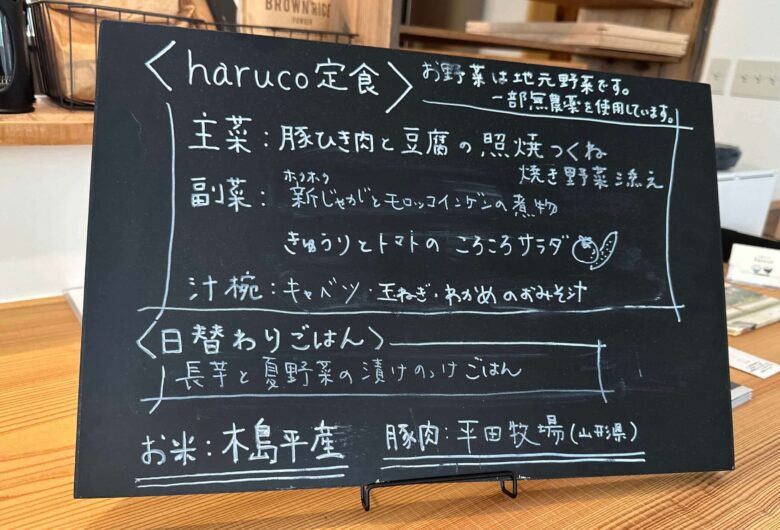 BROWN RICE
POWDER
〈haruco定食〉
お野菜は地元野菜です。
一部無農薬を使用しています。
主菜：豚ひき肉と豆腐の照焼つくね
焼き野菜添え
ホクホク
副菜：新じゃがとモロッコインゲンの煮物
きゅうりとトマトのころころサラダ
汁椀：キャベツ・玉ねぎ・わかめのおみそ汁
〈日替わりごはん〉
長芋と夏野菜の漬けのっけごはん
お米：木島平産
豚肉：平田牧場(山形県)